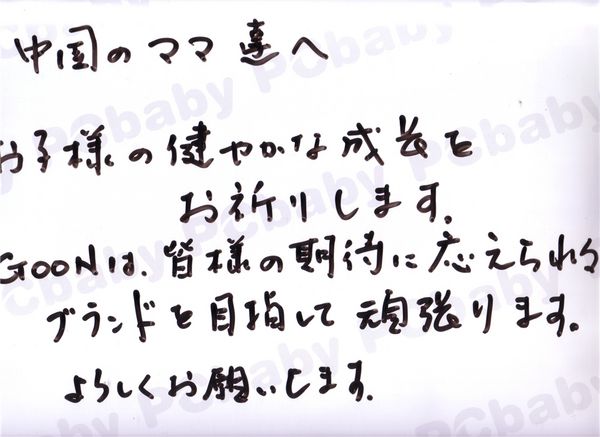 中国のママ達へ
お子様の健やかな成長を
お祈りします。
GOONは、皆様の期待に応えられる
ブランドを目指して頑張ります。
よろしくお願いします。
PCbaby PCbaby